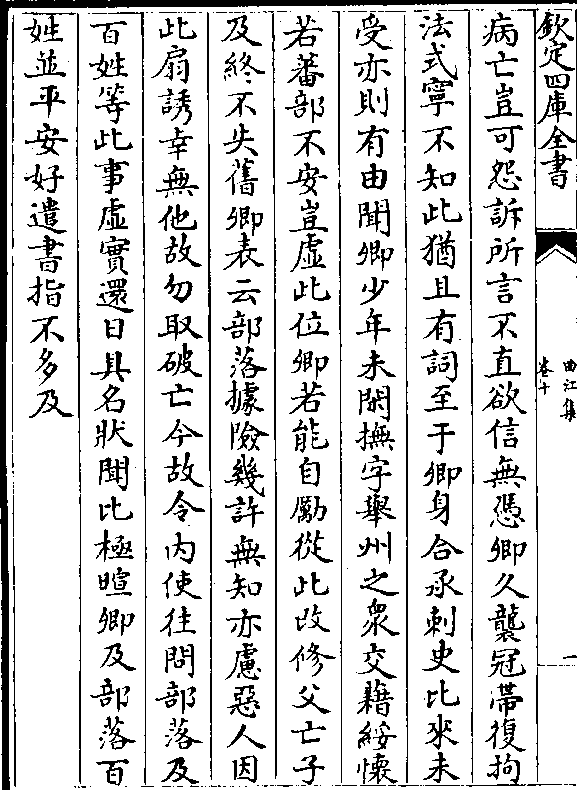 欽定四庫全書
曲江集
卷十
一
病亡豈可怨訴所言不直欲信無憑卿久襲冠帶復拘
法式寧不知此猶且有詞至于卿身合承刺史比來未
受亦則有由聞卿少年未閑撫字舉州之衆交藉綏懷
若蕃部不安豈虛此位卿若能自勵從此改修父亡子
及終不失舊卿表云部落據險幾許無知亦慮惡人因
此扇誘幸無他故勿取破亡今故令内使往問部落及
百姓等此事虛實還日具名狀聞比極暄卿及部落百
姓並平安好遣書指不多及